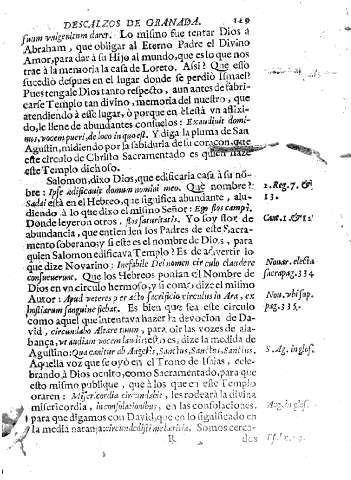 DESCALZOS DE GRANADA. 129
suum unigenitum daret. Lo mismo fue tentar Dios à
Abraham, que obligar al Eterno Padre el Divino
Amor, para dar à su Hijo al mundo, que es lo que nos
trae à la memoria la casa de Loreto. Assi? Que esso
sucediò despues en el lugar donde se perdiò Ismael?
Pues tengale Dios tanto respeto, aun antes de fabri-
carse Templo tan divino, memoria del nuestro, que
atendiendo à esse lugar, ò porque en èl està un afligi-
do, le llene de abundantes consuelos: Exaudivit domi-
nus, vocem pueri, de loco in quo est. Y diga la pluma de San
Agustin, midiendo por la sabiduria de su coraçon, que
este circulo de Christo Sacramentado es quien haze
este Templo dichoso.
Salomon, dixo Dios, que edificaria casa à su no-
bre: Ipse edificavit domum nomini meo. Què nombre?
Sadai està en el Hebreo, que significa abundante, alu-
diendo à lo que dixo el mismo Señor: Ego flos campi.
Donde leyeron otros, flos saturitatis. Yo soy flor de
abundancia, que entienden los Padres de este Sacra-
mento soberano; y si este es el nombre de Dios, para
quien Salomon edificava Templo? Es de advertir lo
que dize Novarino: Inefabile Dei nomen circulo claudere
consueverunt. Que los Hebreos ponian el Nombre de
Dios en un circulo hermoso, y si como dize el mismo
Autor: Apud veteres peracto sacrificio circulus in Ara, ex
hostiarum sanguine fiebat. Es bien que sea este circulo
como aquel que intentava hazer la devocion de Da-
vid, circundabo Altare tuum, para oir las vozes de alaban-
ça, ut audiam vocem laudis dize la medida de
Agustino: Qua cantatur ab Angelis, Sanctus, Sanctus, Sanctus.
Aquella voz que se oyò en el Trono de Isaias, cele-
brando, à Dios oculto, como Sacramentado, para que
esto mismo publique, que à los que en este Templo
oraren: Misericordia circundabit, les rodearà la divina
misericordia, in consolationibus, en las consolaciones,
para que digamos con David, que en lo significado en
la media naranja circundedisti me laetitia. Somos cerca-
R dos
2. Reg. 7. &
13.
Cant. 1. & 12
Novar. electa
sacra pag. 334.
Nov. ubi sup.
pag. 335.
S. Ag. in glos.
Aug. in glos.